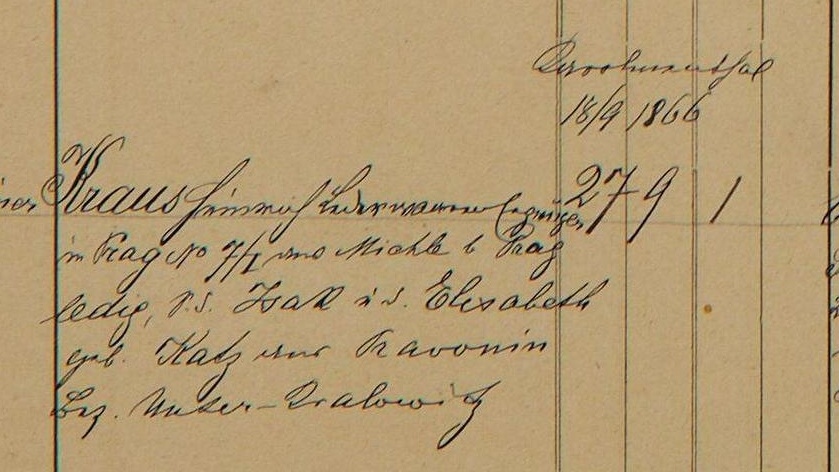 Karolinenthal
18/9 1866
Kraus Heinrich Lederwaren Erzeuger 27 9 1
in Prag No 7/I aus Michle b Prag
ledig, S. d. Isak u d. Elisabeth
geb. Katz aus Pravonin
Bez. Unter-Kralowitz